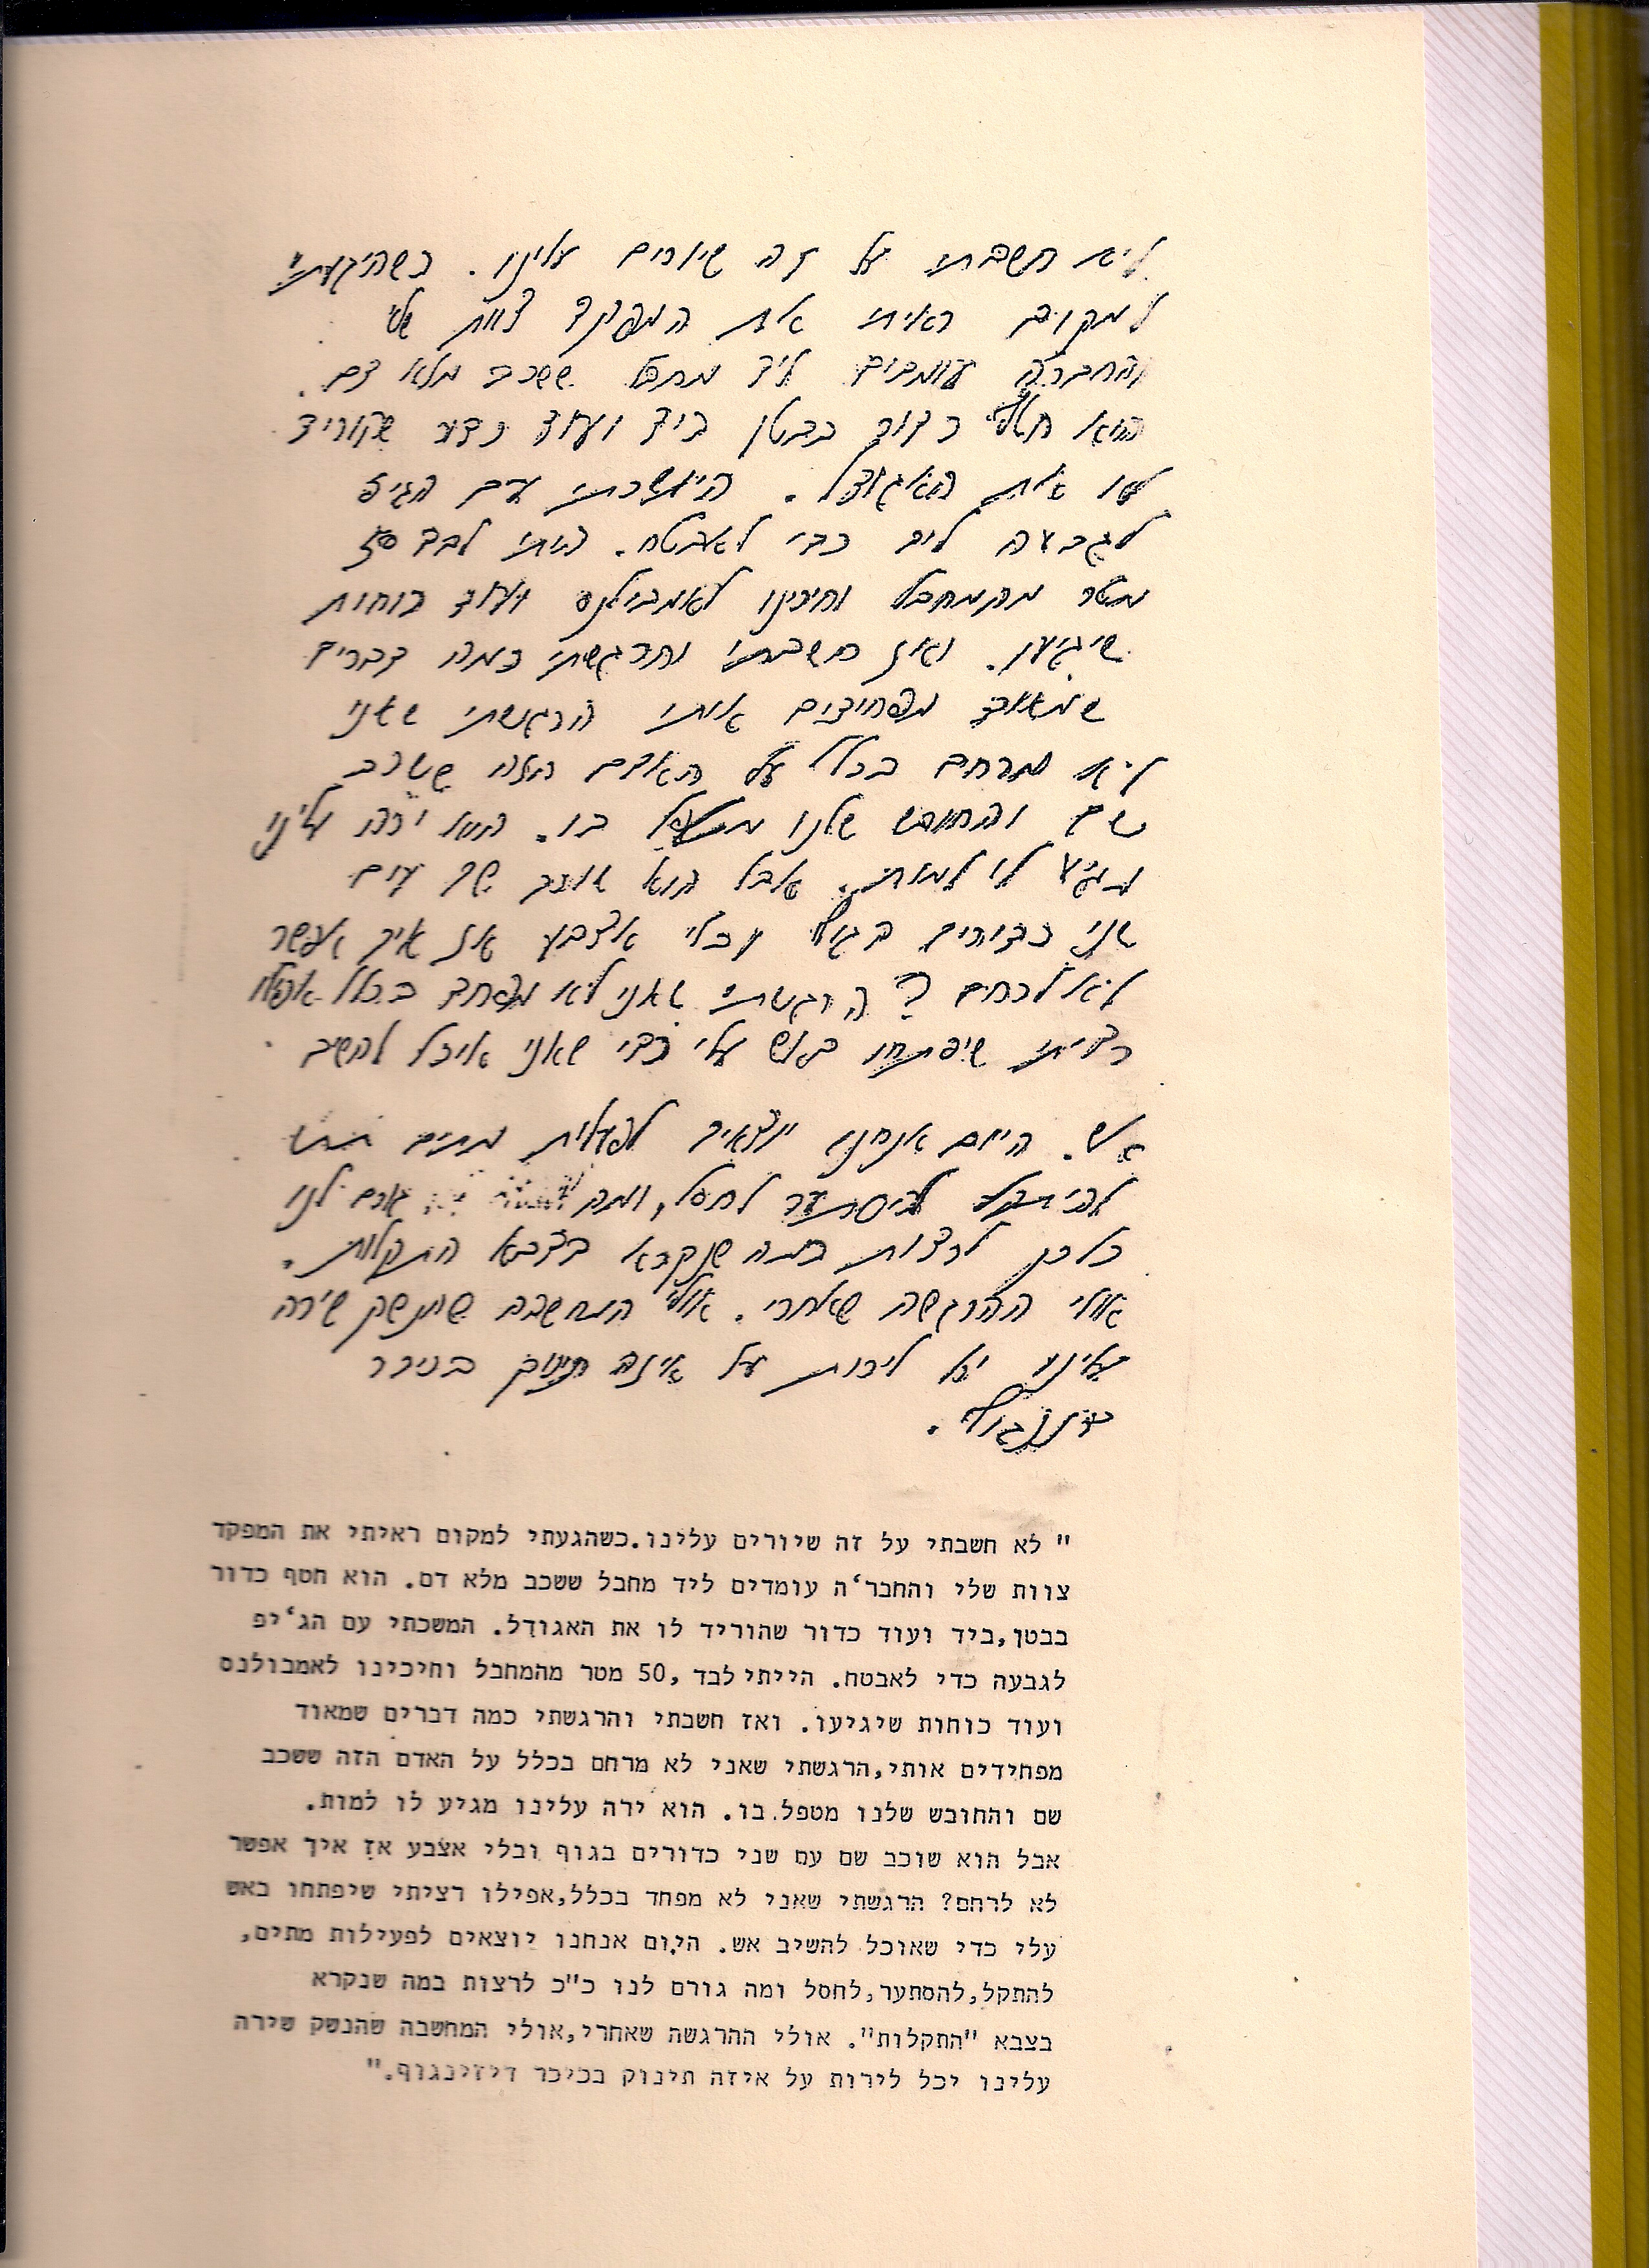 לא חשבתי על זה שיורים עלינו. כשהיגעתי
למקום ראיתי את המפקד צוות שלי
והחברה עומדים ליד מחבל ששכב מלא דם.
הוא חטף כדור בבטן ביד ועוד כדור שהוריד
לו את האגודל. המשכתי עם הגיפ
לגבעה כדי לאבטח. הייתי לבד 50
מטר מהמחבל וחיכינו לאמבולנס ועוד כוחות
שיגיעו. ואז חשבתי והרגשתי כמה דברים
שמאוד מפחידים אותי הרגשתי שאני
לא מרחם בכלל על האדם הזה ששכב
שם והחובש שלנו מטפל בו. הוא ירה עלינו
מגיע לו למות. אבל הוא שוכב שם עם
שני כדורים בגוף ובלי אצבע אז איך אפשר
לא לרחם? הרגשתי שאני לא מפחד בכלל אפילו
רציתי שיפתחו באש עלי כדי שאני אוכל להשיב
אש. היום אנחנו יוצאים לפעילות מתים
להיתקל להיסתער לחסל, ומה גורם לנו
כל כך לרצות במה שנקרא בצבא התקלות.
אולי ההרגשה שאחרי. אולי המחשבה שהנשק שירה
עלינו יכל לירות על איזה תינוק בכיכר
דיזנגוף.
" לא חשבתי על זה שיורים עלינו.כשהגעתי למקום ראיתי את המפקד
צוות שלי והחבר'ה עומדים ליד מחבל ששכב מלא דם. הוא חטף כדור
בבטן,ביד ועוד כדור שהוריד לו את האגודל. המשכתי עם הג'יפ
לגבעה כדי לאבטח. הייתי לבד ,50 מטר מהמחבל וחיכינו לאמבולנס
ועוד כוחות שיגיעו. ואז חשבתי והרגשתי כמה דברים שמאוד
מפחידים אותי,הרגשתי שאני לא מרחם בכלל על האדם הזה ששכב
שם והחובש שלנו מטפל בו. הוא ירה עלינו מגיע לו למות.
אבל הוא שוכב שם עם שני כדורים בגוף ובלי אצבע אז איך אפשר
לא לרחם? הרגשתי שאני לא מפחד בכלל,אפילו רציתי שיפתחו באש
עלי כדי שאוכל להשיב אש. היום אנחנו יוצאים לפעילות מתים,
להתקל,להסתער,לחסל ומה גורם לנו כ"כ לרצות במה שנקרא
בצבא "התקלות". אולי ההרגשה שאחרי,אולי המחשבה שהנשק שירה
עלינו יכל לירות על איזה תינוק בכיכר דיזינגוף."